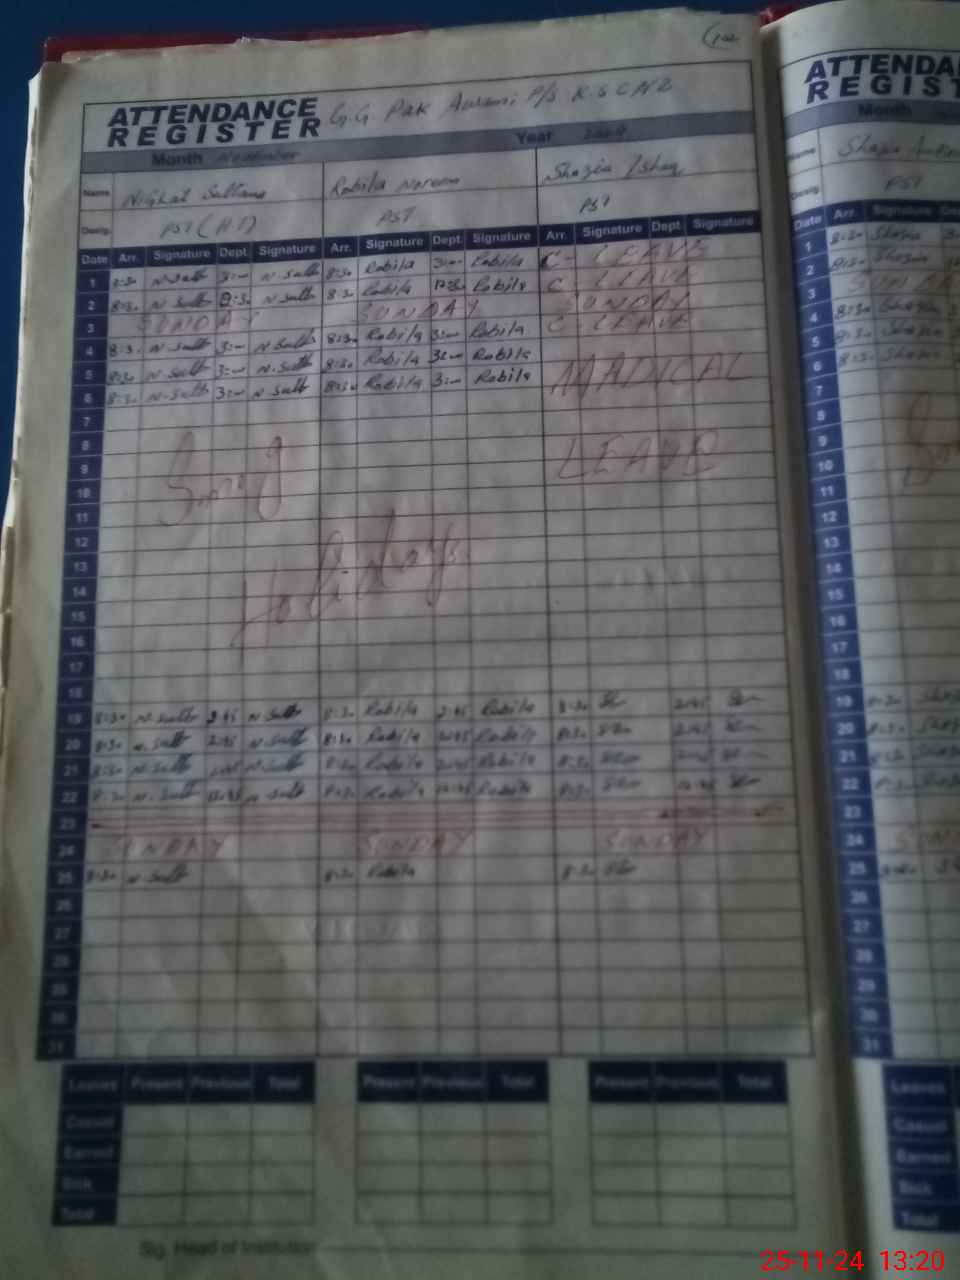 ATTENDANCE REGISTER G.G Pak Awami P/S K.S C N2
Month November Year
Name Nighat Sultana Robila Noreen Shazia Ishaq
Desig. PST (H.T) PST PST
Date Arr. Signature Dept Signature Arr. Signature Dept. Signature Arr. Signature Dept Signature
1 8:30 N.Sult 3:00 N.Sult 8:30 Robila 3:00 Robila C. LEAVE
2 8:30 N.Sult N.Sult 8:30 Robila 12:30 Robila C. LEAVE
3 SUNDAY SUNDAY SUNDAY
4 8:30 N.Sult 3:00 N.Sult 8:30 Robila 3:00 Robila C LEAVE
5 8:30 N.Sult 3:00 N.Sult 8:30 Robila 3:00 Robila
6 8:30 N.Sult 3:00 N.Sult 8:30 Robila 3:00 Robila MADICAL
7
8
9 Smog LEAVE
10
11
12
13
14 Holidays
15
16
17
18
19 8:30 N.Sult 2:45 N.Sult 8:30 Robila 2:45 Robila 8:30 2:45
20 8:30 N.Sult 2:45 N.Sult 8:30 Robila 2:45 Robila 8:30 2:45
21 8:30 N.Sult 2:45 N.Sult 8:30 Robila 2:45 Robila 8:30 2:45
22 8:30 N.Sult 12:45 N.Sult 8:30 Robila 12:45 Robila 8:30 12:45
23
24 SUNDAY SUNDAY SUNDAY
25 8:30 N.Sult 8:30 Robila 8:30
26
27
28
29
30
31
Leaves Present Previous Total Present Previous Total Present Previous Total
Casual
Earned
Sick
Total
Sig. Head of Institution
ATTENDA
REGIST
Month
Name Shazia
Desig. PST
Date Arr. Signature
1 8:30 Shazia
2 8:30 Shazia
3 SUN
4 8:30 Shazia
5 8:30 Shazia
6 8:30 Shazia
7
8
9
10
11
12
13
14
15
16
17
18
19 8:30
20 8:30
21 8:30
22 8:30
23
24 SUN
25
26
27
28
29
30
31
Leaves
Casual
Earned
Sick
Total
25-11-24 13:20